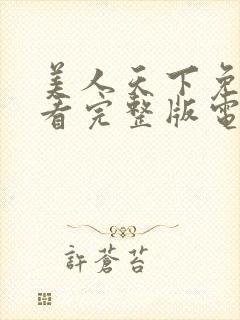 美人天下免
看完整版電
許蒼苔